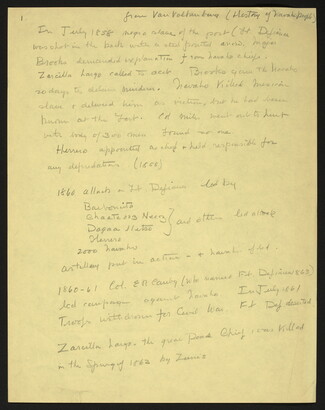 1
from Van Valkenburg (History of Navajo People)
In July 1858 negro slave of the post (Ft. Defiance
was shot in the back with a steel pointed arrow. Major
Brooks demanded explanation from navaho chiefs.
Zarcilla Largo called to act Brooks gave the Navaho
20 days to deliver murderer. Navaho killed Mexican
slave & delivered him as victim, but he had been
known at the Fort. Col Miles went out to hunt
with troop of 300 men Found no one.
Herrero appointed as chief & held responsible for
any depredation (1858)
1860 attacks on Ft. Defiance led by
Barboncito
Chaato
Herrero
and others led attack
2000 navaho
artillery put in action - & navaho
1860-61 Col. E R Canby (who named Ft.
led campaign against Navaho In July 1861
Troops withdrawn for Civil War. Ft Def deserted
Zarcilla Largo - the great peace Chief was killed
in the Spring of 1862 by Zunis